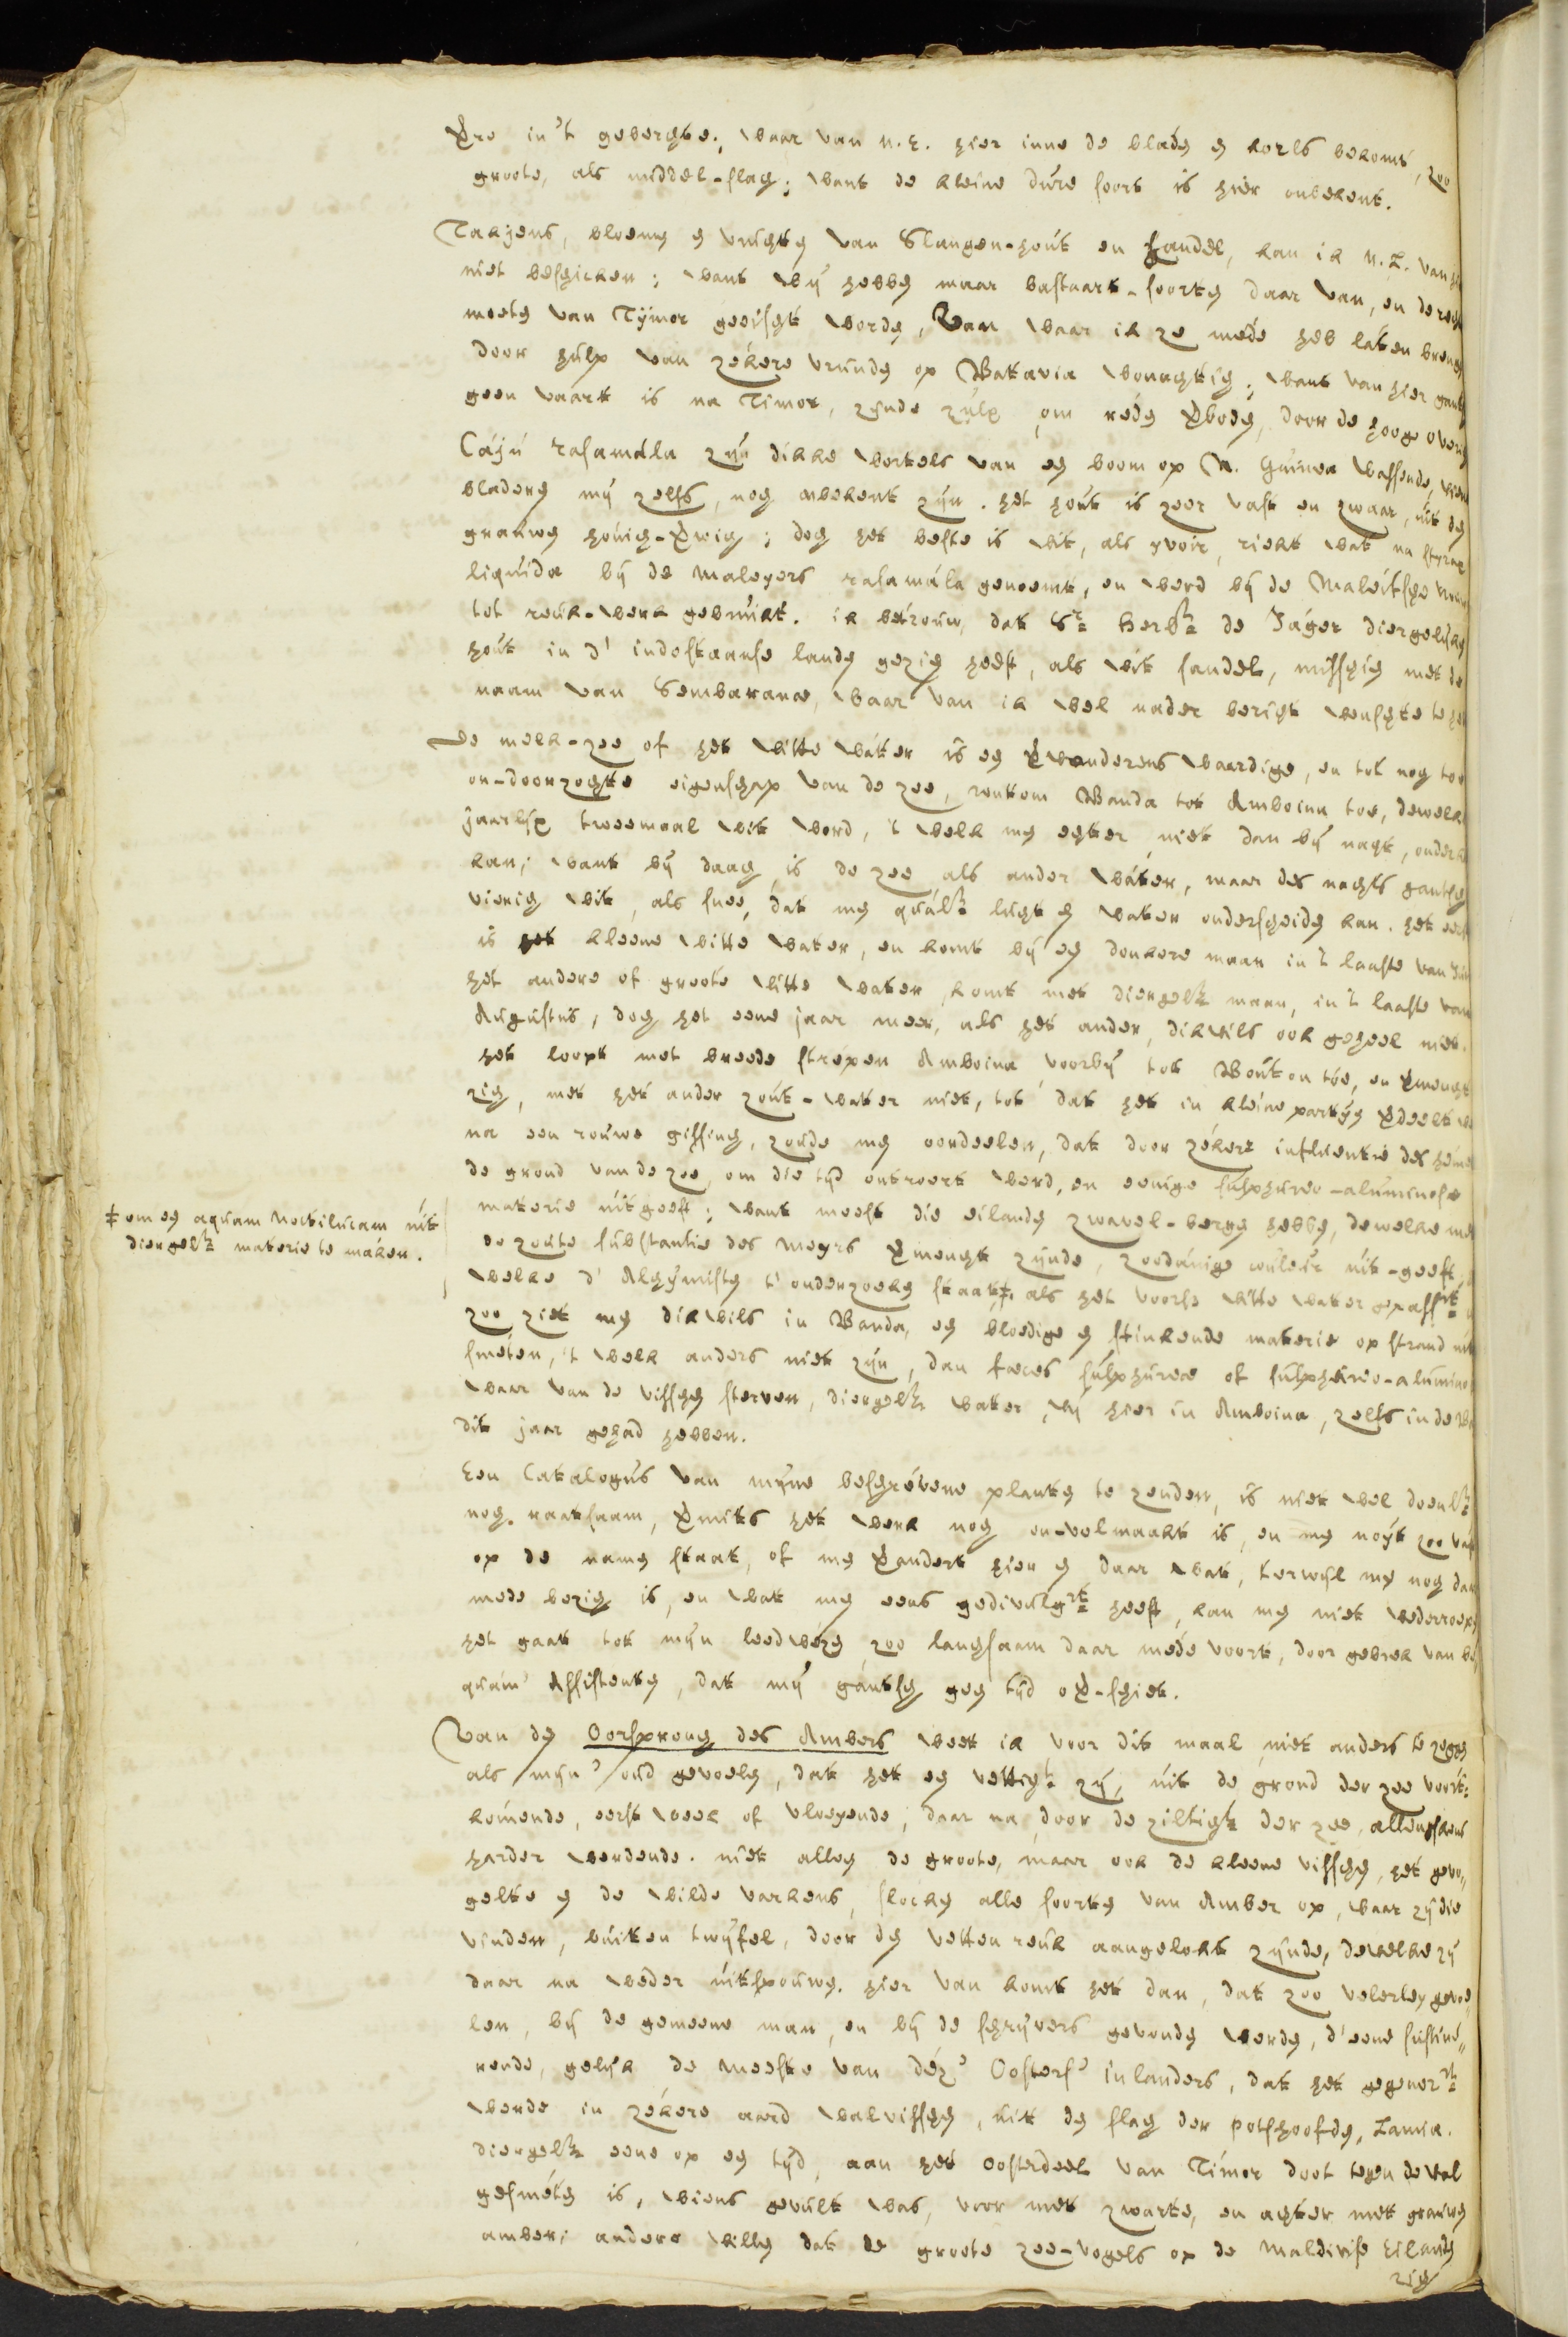 vre in 't geberghte; waar van U.E. hier inne de bladen en korls bekomt, zoo
groote, als middel-slag; want de kleine dure soort is hier onbekent.
Takjens, bloemen en vrughten van Slangen-hout en Sandel, kan ik U.E. van hi
niet beschicken; want wij hebben maar bastaart-soorten daar van, en de regt
moeten van Tijmor geeischt worden, Van waar ik ze mede heb laten breng
door hulp van zekere vrunden op Batavia wonachtig; want van hier gants
geen vaart is na Timor, zijnde zulx om reden verboden, door de hooge overig
Cajú rasamála zijn dikke wortels van een boom op N. Guinea wassende, wiens
bladeren mij zelfs, nog onbekent zijn. het hout is zeer vast en zwaar, uit den
grauwen honich-verwich; dog het beste is wit, als yvoir, riekt wat na styrax
liquida bij de Maleyers rasamála genoemt, en werd bij de Maleitsche vrouw
tot reuk-werk gebruikt. ik betrouw, dat Sr. Herbt. de Jáger diergelijken
hout in d' indostaanse landen gezien heeft, als wit sandel, misschien met de
naam van Sembarane, waar van ik wel nader berigt wenschte te heb
De melk-zee of het witte water is een verwonderens waardige, en tot nog toe
on-doorzochte eigenschap van de zee, rontom Banda tot Amboina toe, dewelke
jaarlijx tweemaal wit werd, 't welk men echter niet dan bij nagt, onderk
kan; want bij daag is de zee als ander water, maar des nachts gantsch
vierig wit, als snee, dat men qualk. lucht en water onderscheiden kan. het eers
is het kleene witte water, en komt bij een donkere maan in 't laaste van Jun
het andere of groote witte water, komt met diergelk. maan, in 't laaste van
Augustus, dog het eene jaar meer, als het ander, dikwils ook geheel niet.
het loopt met breede strepen Amboina voorbij tot Bouton toe, en vermengt
zig, met het ander zout-water niet, tot dat het in kleine partijen verdeelt w
na een rouwe gissing, zoude men oordeelen, dat door zékere influentie des hemel
de grond van de zee, om die tijd ontroert werd, en eenige sulphureo-aluminose
materie uitgeeft; want meest die eilanden zwavel-bergen hebben, dewelke met
de zoute substantie des Meyrs vermengt zijnde, zoodánige couleur uit-geeft,
welke d' Alchymisten t' onderzoeken staat ‡. als het voorsz witte water gepasst. i
‡ om een aquam Noctilucam uit
diergelk. materie te maken.
zoo ziet men dikwils in Banda, een bloedige en stinkende materie op strand uit
smeten, 't welk anders niet zijn, dan faeces sulphureae of sulphureo-alumino
waar van de visschen sterven, diergelk. water, wij hier in Amboina, zelfs in de
dit jaar gehad hebben.
Een Catalogus van mijne beschrévene planten te zenden, is niet wel doenlk.
nog raatsaam, vermits het werk nog on-volmaakt is, en men noyt zoo vas
op de namen staat, of men verandert hier en daar wat, terwijl men nog daar
mede bezig is, en wat men eens gedivulgrt. heeft, kan men niet wederroepe
het gaat tot mijn leedwezen zoo langhsaam daar mede voort, door gebrek van be
quam' Assistenten, dat mij gantsch geen tijd over-schiet.
Van den Oorsprong des Ambers weet ik voor dit maal niet anders te zeggen
als mijn' oud gevoelen, dat het een vettigh. zij, uit de grond der zee voort:
komende, eerst week of vloeyende, daar na door de ziltigh. der zee, allenskens
harder werdende. niet alleen de groote, maar ook de kleene visschen, het gevo„
gelte en de wilde varkens, slocken alle soorten van Amber op, waar zij die
vinden, buiten twijfel, door den vetten reuk aangelokt zijnde, dewelke zij
daar na weder uitspouwen. hier van komt het dan, dat zoo velerley gevoe„
len, bij de gemeene man, en bij de schrijvers gevonden werden, d' eene sustine„
rende, gelijk de meeste van déz' Oosters' inlanders, dat het gegenerrt.
werde in zékere aard walvisschen, uit den slag der Potshoofden, Lamia.
diergelk. eene op een tijd, aan het Oosterdeel van Timor doot tegen de wal
gesméten is, wiens gevult was, voor met zwarte, en achter met grauwen
amber; andere willen dat de groote zee-vogels op de Maldivise Eilanden
zig